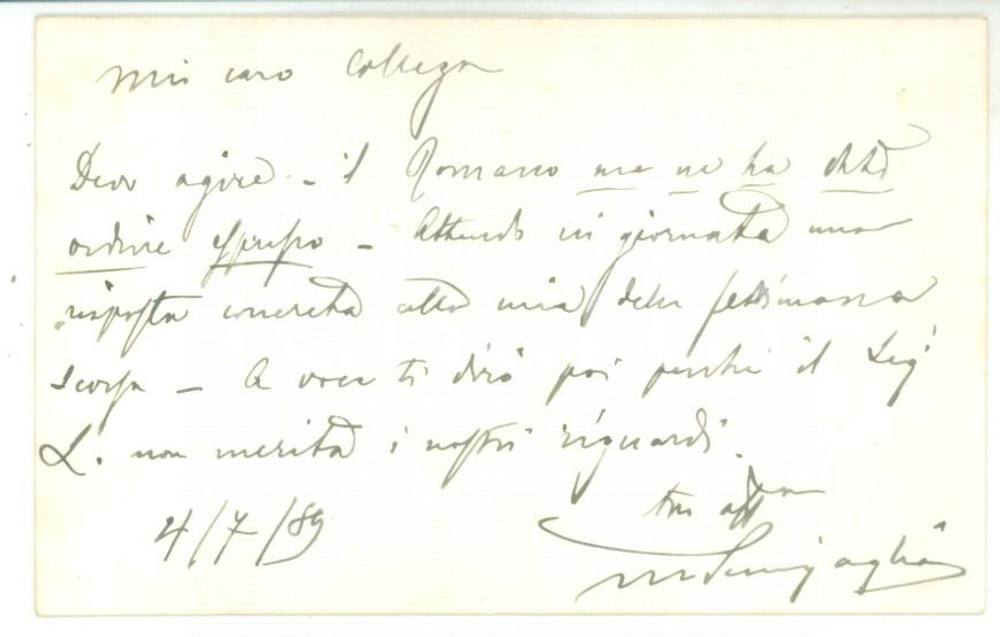 Mio caro Collega
Devo agire - il Romano me ne ha dato
ordine espresso - Attendo in giornata una
risposta concreta alla mia della settimana
scorsa - A voce ti dirò poi perchè il Sig
L. non merita i nostri riguardi.
tuo aff
4/7/89